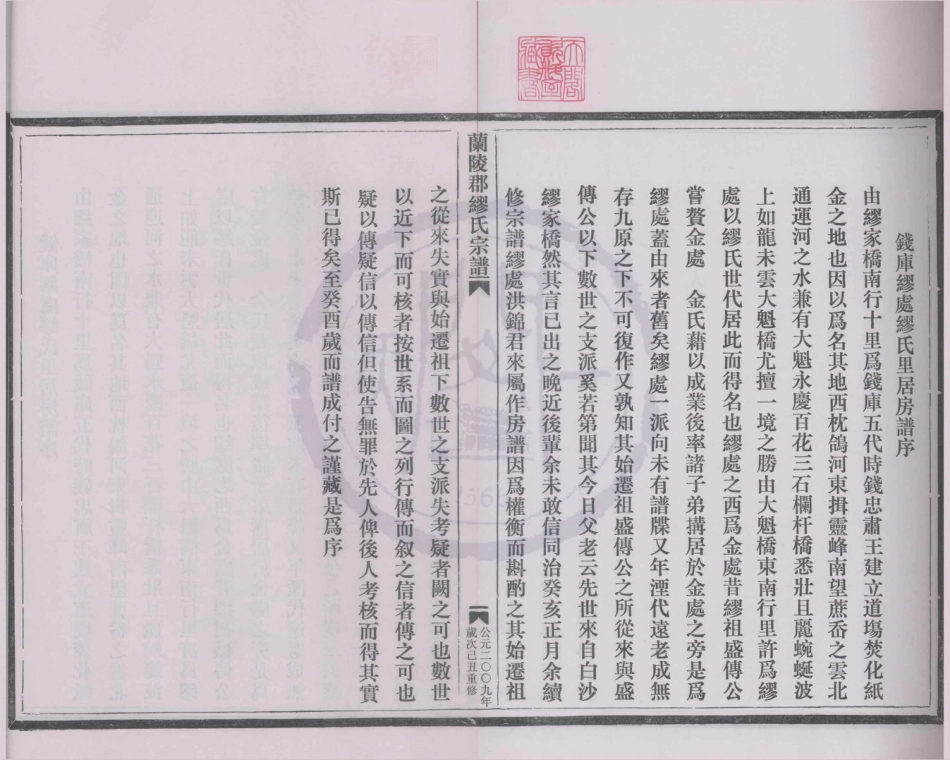 錢庫繆處繆氏里居房譜序
由繆家橋南行十里爲錢庫五代時錢忠肅王建立道場焚化紙
金之地也因以爲名其地西枕鴿河東揖靈峰南望蔗岙之雲北
通運河之水兼有大魁永慶百花三石欄杆橋悉壯且麗蜿蜒波
上如龍未雲大魁橋尤擅一境之勝由大魁橋東南行里許爲繆
處以繆氏世代居此而得名也繆處之西爲金處昔繆祖盛傳公
嘗贅金處 金氏藉以成業後率諸子弟搆居於金處之旁是爲
繆處蓋由來者舊矣繆處一派向未有譜牒又年湮代遠老成無
存九原之下不可復作又孰知其始遷祖盛傳公之所從來與盛
傳公以下數世之支派奚若第聞其今日父老云先世來自白沙
繆家橋然其言已出之晚近後輩余未敢信同治癸亥正月余續
修宗譜繆處洪錦君來屬作房譜因爲權衡而斟酌之其始遷祖
蘭陵郡繆氏宗譜
一
公元二〇〇九年
歲次己丑重修
之從來失實與始遷祖下數世之支派失考疑者闕之可也數世
以近下而可核者按世系而圖之列行傳而叙之信者傳之可也
疑以傳疑信以傳信但使告無罪於先人俾後人考核而得其實
斯已得矣至癸酉歲而譜成付之謹藏是爲序
1568